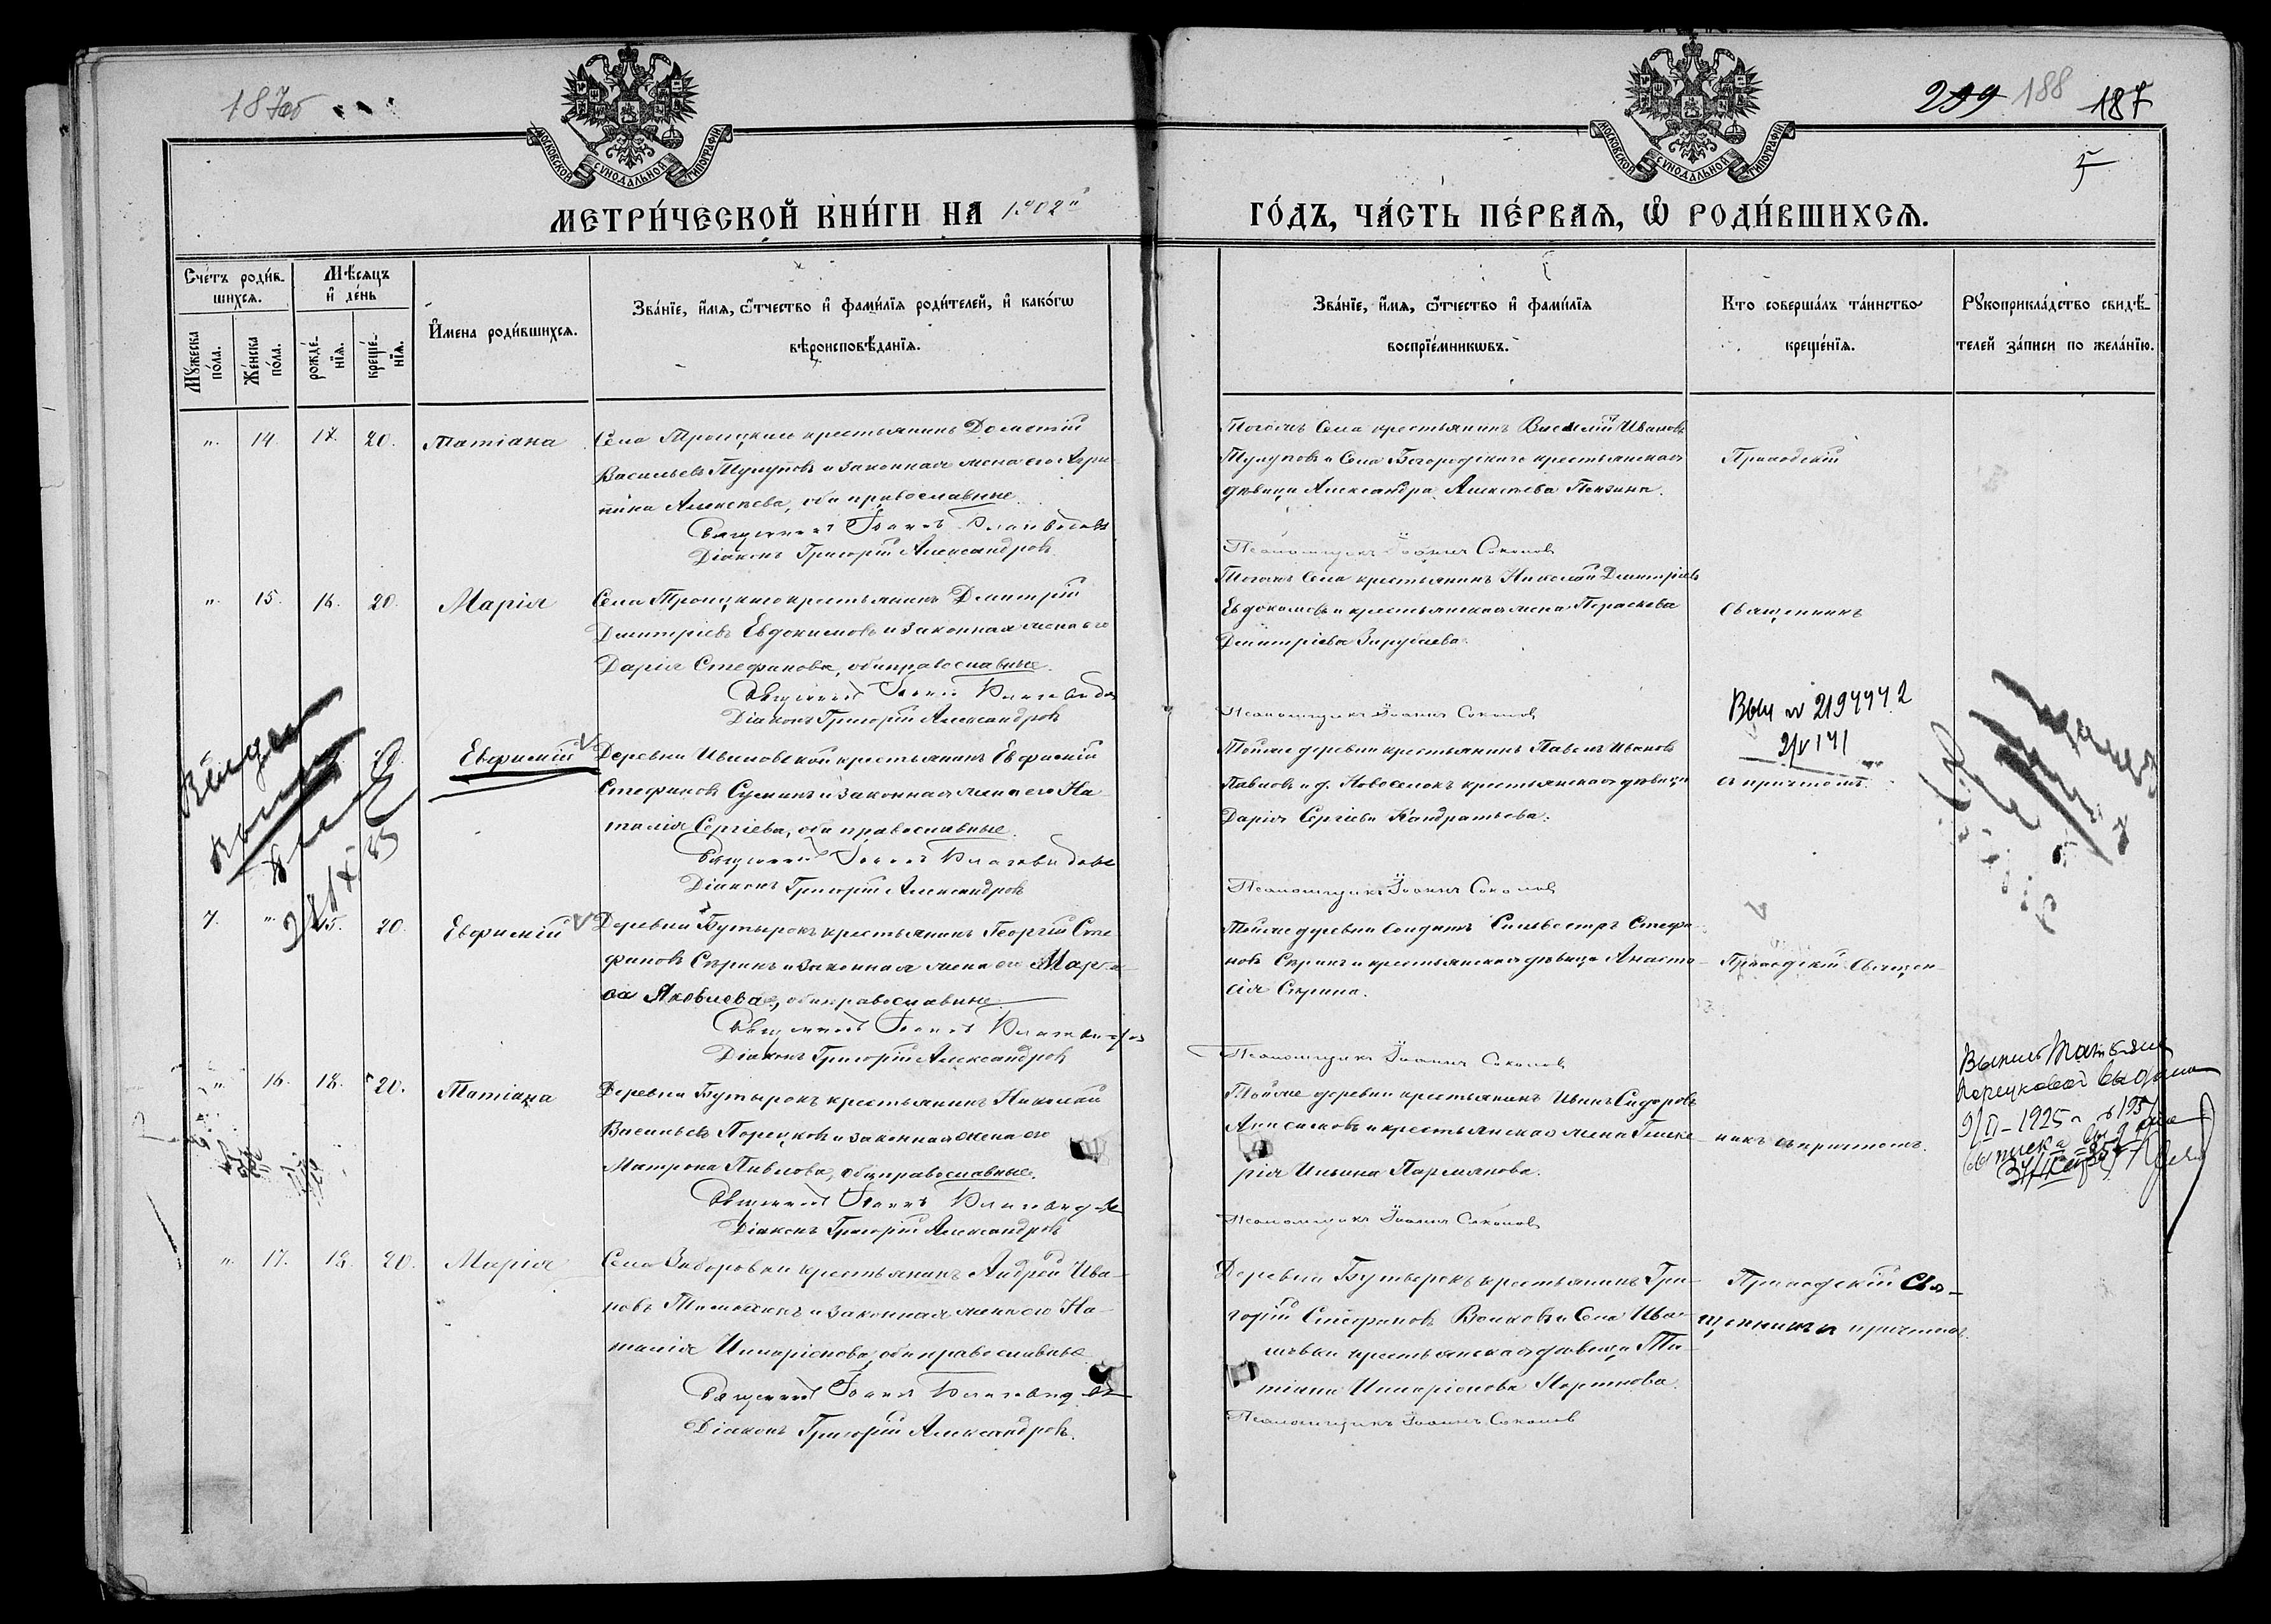 187об
299 188 187
5
МОСКОВСКОЙ СѴНОДАЛЬНОЙ ТИПОГРАФІИ
МОСКОВСКОЙ СѴНОДАЛЬНОЙ ТИПОГРАФІИ
МЕТРИ́ЧЕСКОЙ КНИ́ГИ НА 1902й
ГО́ДЪ, ЧА́СТЬ ПЕ́РВАЯ, Ѽ РОДИ́ВШИХСЯ.
Сче́тъ роди́в-
шихся.
Мѣ́сяцъ
и҆ де́нь
Мꙋ́жеска
по́ла.
Же́нска
по́ла.
рожде́-
нїя.
креще́-
нїя.
И҆мена роди́вшихся.
Зва́нїе, и҆́мя, ѻ҆́тчество и҆ фами́лїя роди́телей, и҆ како́гѡ
вѣроисповѣ́данїя.
Зва́нїе, и҆́мя, ѻ҆́тчество и҆ фами́лїя
воспрїе́мникѡвъ.
Кто соверша́лъ та́инство
креще́нїя.
Рꙋкоприкла́дство свидѣ́-
телей за́писи по жела́нїю.
" 14. 17. 20. Татіана
Села Троицкаго крестьянинъ Дометій
Васильевъ Тулуповъ и законная жена его Агри-
пина Алексѣева, оба православные.
Священникъ Іоаннъ Благовидовъ
Діаконъ Григорій Александровъ
Тогоже Села крестьянинъ Василій Ивановъ
Тулуповъ и Села Богородскаго крестьянская
дѣвица Александра Алексѣева Пензина.
Псаломщикъ Іоаннъ Соколовъ
Приходскій
" 15. 16. 20. Марія
Села Троицкаго крестьянинъ Димитрій
Димитріевъ Евдокимовъ и законная жена его
Дарія Стефанова, оба православные.
Священникъ Іоаннъ Благовидовъ
Діаконъ Григорій Александровъ
Тогоже Села крестьянинъ Николай Димитріевъ
Евдокимовъ и крестьянская жена Параскева
Димитріева
Псаломщикъ Іоаннъ Соколовъ
Священникъ
Евфимій
Деревни Ивановской крестьянинъ Евфимій
Стефановъ и законная жена его На-
талія Сергіева, оба православные.
Священникъ Іоаннъ Благовидовъ
Діаконъ Григорій Александровъ
Тойже деревни крестьянинъ Павелъ Ивановъ
Павловъ и д. Новоселокъ крестьянская дѣвица
Дарія Сергіева Кандратьева.
Псаломщикъ Іоаннъ Соколовъ
Выч № 2194442
2/V 141
съ причтомъ.
7. " 15. 20. Евфимій
Деревни Бутырокъ крестьянинъ Георгій Сте-
фановъ Сѣринъ и законная жена его Мар-
ѳа Яковлева, оба православные
Священникъ Іоаннъ Благовидовъ
Діаконъ Григорій Александровъ
Тойже деревни солдатъ Сильвестръ Стефа-
новъ Сѣринъ и крестьянская дѣвица Анаста-
сія Сѣрина.
Псаломщикъ Іоаннъ Соколовъ
Приходскій Священ-
" 16. 18. 20. Татіана
Деревни Бутырокъ крестьянинъ Николай
Васильевъ Порецковъ и законная жена его
Матрона Павлова, оба православные.
Священникъ Іоаннъ Благовидовъ
Діаконъ Григорій Александровъ
Тойже деревни крестьянинъ Иванъ Сидоровъ
Анисимовъ и крестьянская жена Глике-
рія Ильина
Псаломщикъ Іоаннъ Соколовъ
никъ съ причтомъ.
Выпись Татьяне
Порецковой выдана
9/II-1925
" 17. 18. 20. Марія
Села Заборовки крестьянинъ Андрей Ива-
новъ и законная жена его На-
талія Иларіонова, оба православные
Священникъ Іоаннъ Благовидовъ
Діаконъ Григорій Александровъ.
Деревни Бутырокъ крестьянинъ Гри-
горій Стефановъ Волковъ и Села Ива-
шевки крестьянская дѣвица Та-
тіана Иларіонова Мартынова.
Псаломщикъ Іоаннъ Соколовъ
Приходскій Свя-
щенникъ и причтомъ.